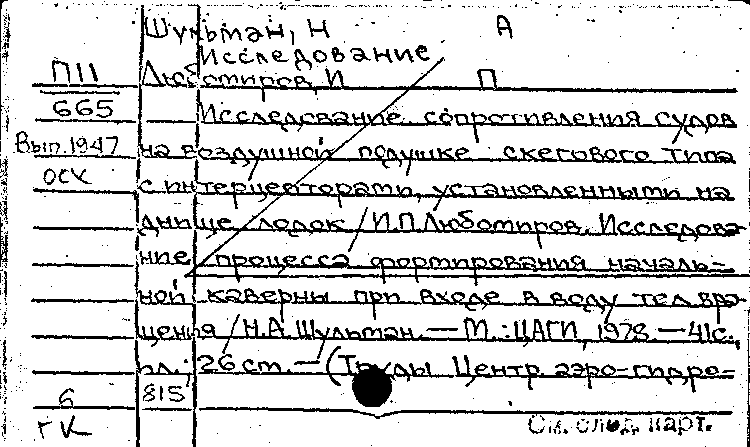 Шульман, Н А
Исследование
П11 Любомиров, И П
665 Исследование сопротивления судов
Вып. 1947 на воздушной подушке скегового типа
ОСК с интерцепторами, установленными на
днище лодок / И.П. Любомиров. Исследова-
ние процесса формирования началь-
ной каверны при входе в воду тел вра-
щения / Н.А. Шульман. — М.: ЦАГИ, 1978. — 41 с.,
ил.; 26 см. — (Труды Центр. аэро-гидро-
6 815
ГК См. след. карт.